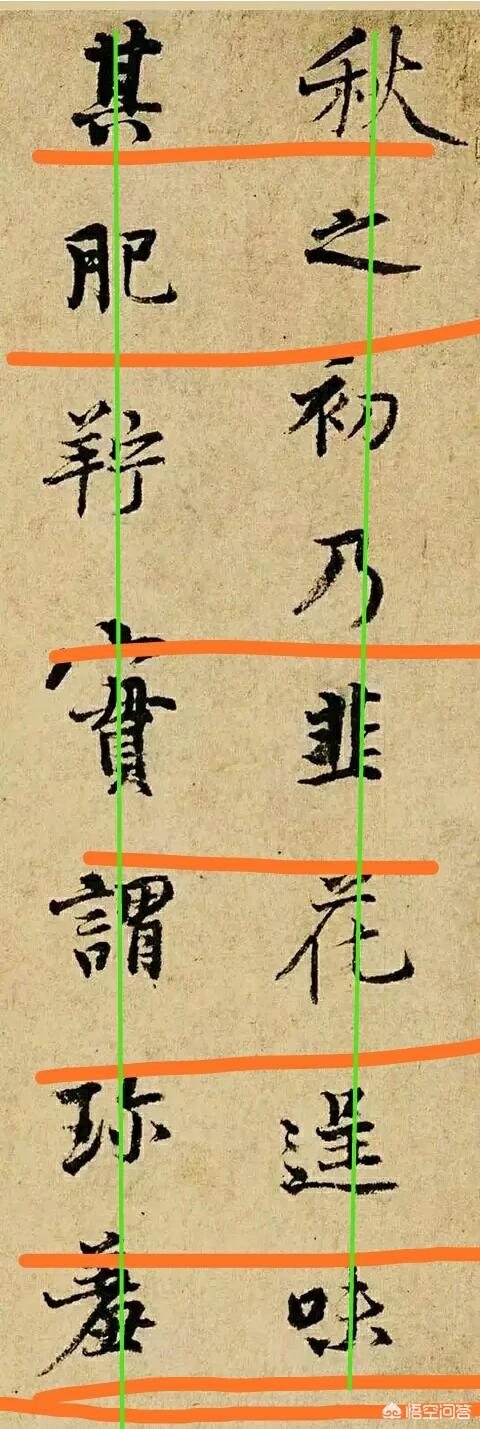 秋之初乃韭花逞味
其肥羜實謂珍羞
悟空问答